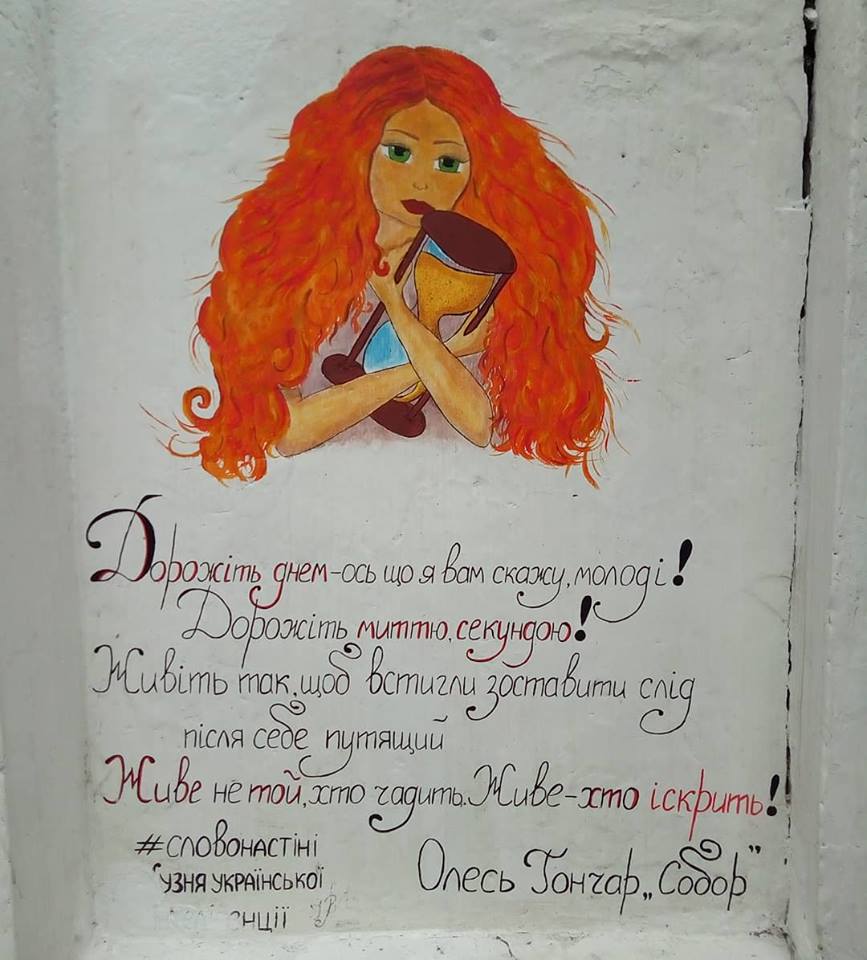 Дорожіть днем-ось що я вам скажу, молоді!
Дорожіть миттю, секундою!
Живіть так, щоб встигли зоставити слід
після себе путящий
Живе не той, хто чадить. Живе-хто іскрить!
#словонастіні
узня української
нції
Олесь Гончар „Собор"